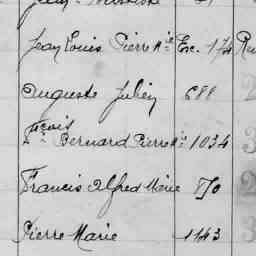 Jean Louis Pierre Mie Exc. 174
Auguste Julien 688
Fçois
Bernard Pierre Mie 1034
Francis Alfred Marie
Pierre Marie 1143